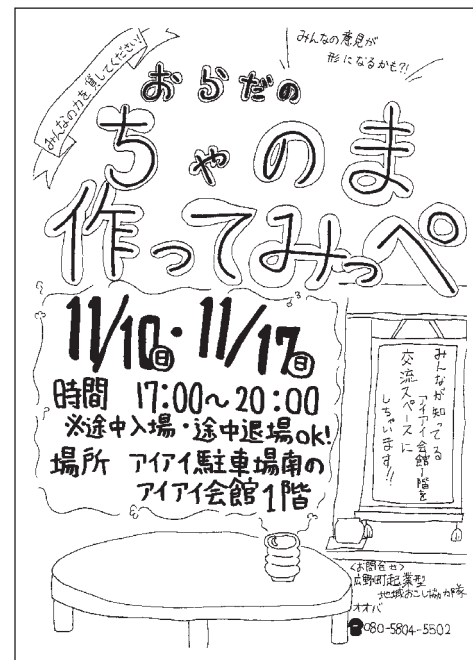 みんなの力を貸してください!
みんなの意見が
形になるかも?!
おらだの
ちゃのま
作ってみっぺ
11/10㊐・11/17㊐
時間 17:00〜20:00
※途中入場・途中退場ok!
場所 アイアイ駐車場南の
アイアイ会館1階
みんなが知ってる
アイアイ会館1階を
交流スペースに
しちゃいます!!
<お問合せ>
広野町起業型
地域おこし協力隊
オオバ
☎080-5804-5502